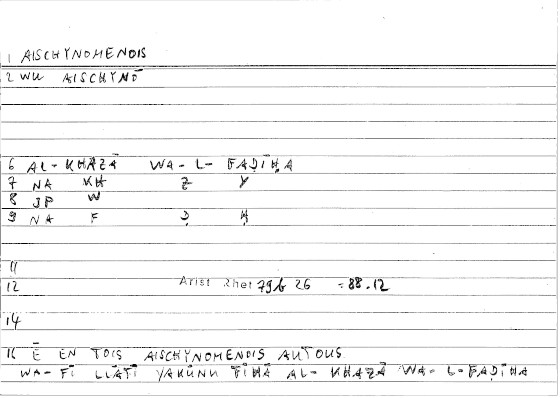 1 AISCHYNOMENOIS
2 WU AISCHYNŌ
6 AL-KHAZĀ WA-L-FAḌĪḤA
7 NA KH Z Y
8 JP W
9 NA F Ḍ Ḥ
11
12 Arist Rhet 79b 26 = 88.12
14
16 Ē EN TOIS AISCHYNOMENOIS AUTOUS
WA-FĪ LLĀTĪ YAKŪNU FĪHĀ AL-KHAZĀ WA-L-FAḌĪḤA